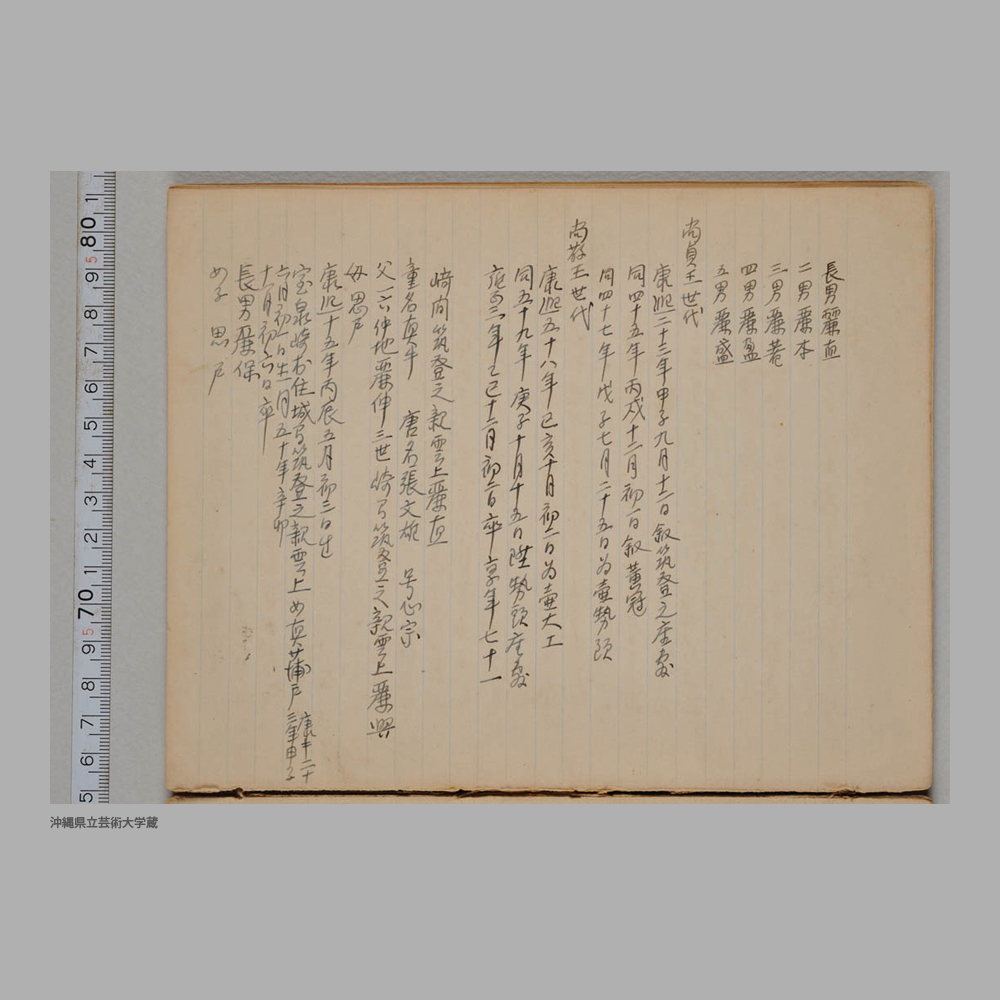 長男麗直
二男麗本
三男麗
四男麗盈
五男麗盛
尚貞王世代
康熙二十三年甲子九月十二日叙筑登之座敷
同四十五年丙戌十二月初一日叙黄冠
同四十七年戊子七月二十五日為壷勢頭
尚敬王世代
康熙五十八年己亥十月初二日為壷大工
同五十九年庚子十月十五日陞勢頭座敷
雍正三年乙巳十二月初二日卒享年七十一
崎間筑登之親雲上麗直
童名真牛 唐名張文雄 号心宗
父一六仲地麗伸三世崎間筑登之親雲上麗興
母思戸
康熙十五年丙辰五月初三日生
宝泉崎村住城間筑登之親雲上女真蒲戸 康キ二十三年甲子
六月初 日生 月五十年辛卯
十二月初六日卒
長男麗保
女子 思戸
80
5
9
8
7
6
5
4
3
2
1
70
5
9
8
7
6
5
沖縄県立芸術大学蔵